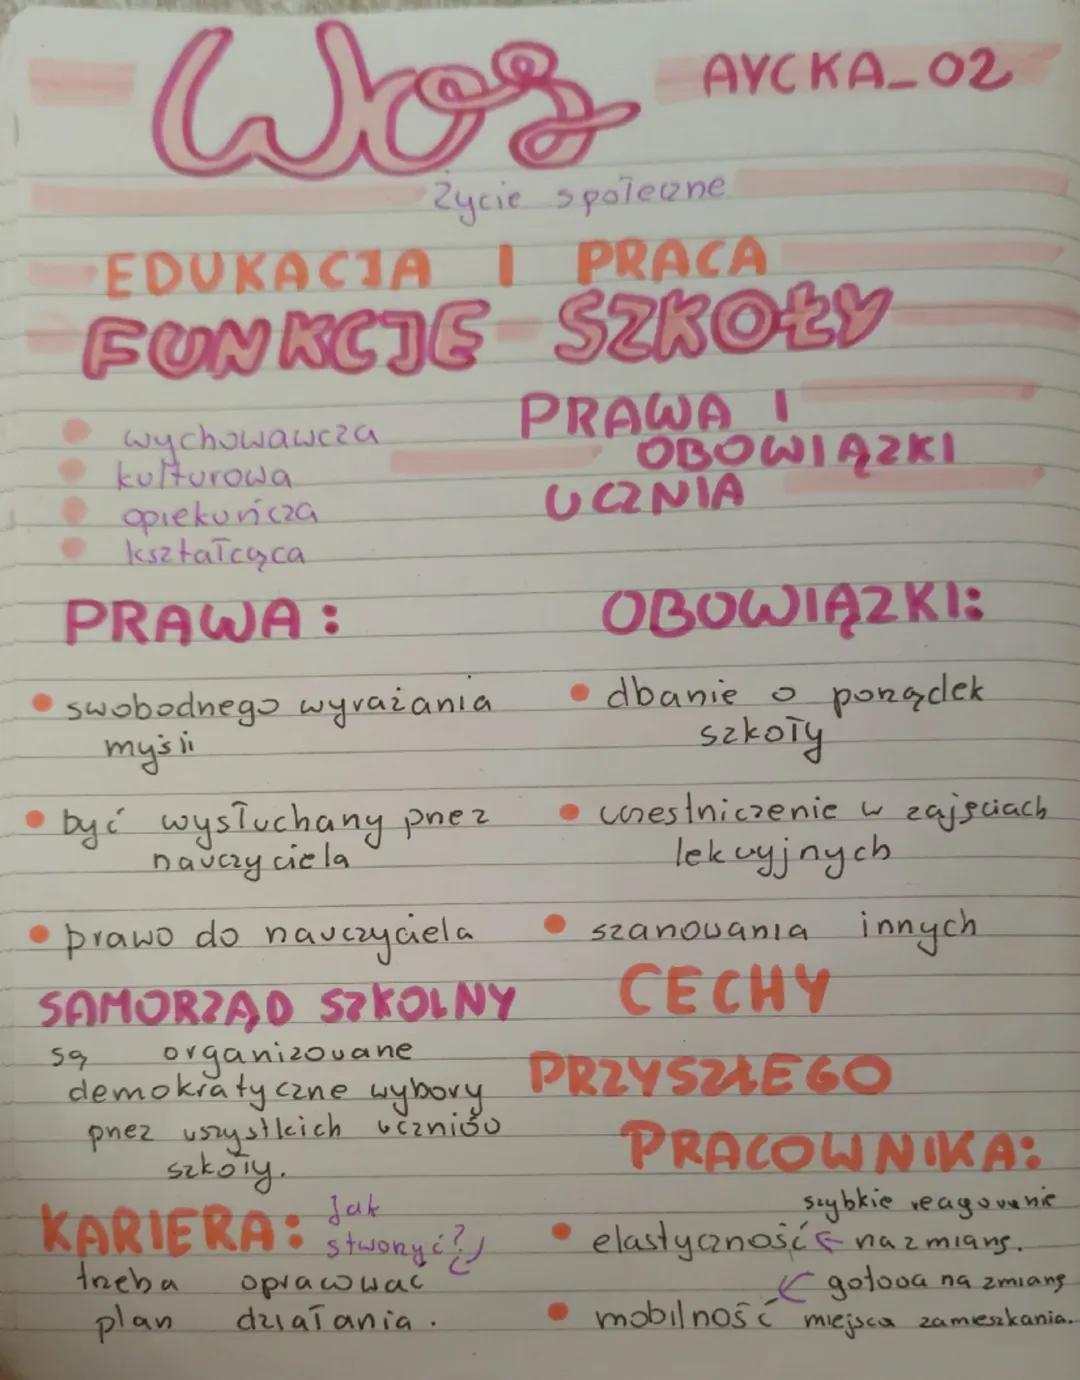 Wos
AYCKA_02
Życie społeczne
EDUKACJA I PRACA
FUNKCJE SZKOŁY
wychowawcza
kulturowa
opiekuńcza
kształcąca
PRAWA I
OBOWIĄZKI
UCZNIA
PRAWA:
swobodnego wyrażania
myśli
być wysłuchany przez
nauczyciela
prawo do nauczyciela
OBOWIĄZKI:
dbanie o porządek
szkoły
uczestniczenie w zajęciach
lekcyjnych
szanowania innych
SAMORZĄD SZKOLNY
są organizowane
demokratyczne wybory
przez wszystkich uczniów
szkoły.
KARIERA: Jak
stworzyć?
trzeba opracować
plan działania.
CECHY
PRZYSZŁEGO
PRACOWNIKA:
szybkie reagowanie
elastyczność ← na zmianę.
← gotowa na zmianę
mobilność miejsca zamieszkania.